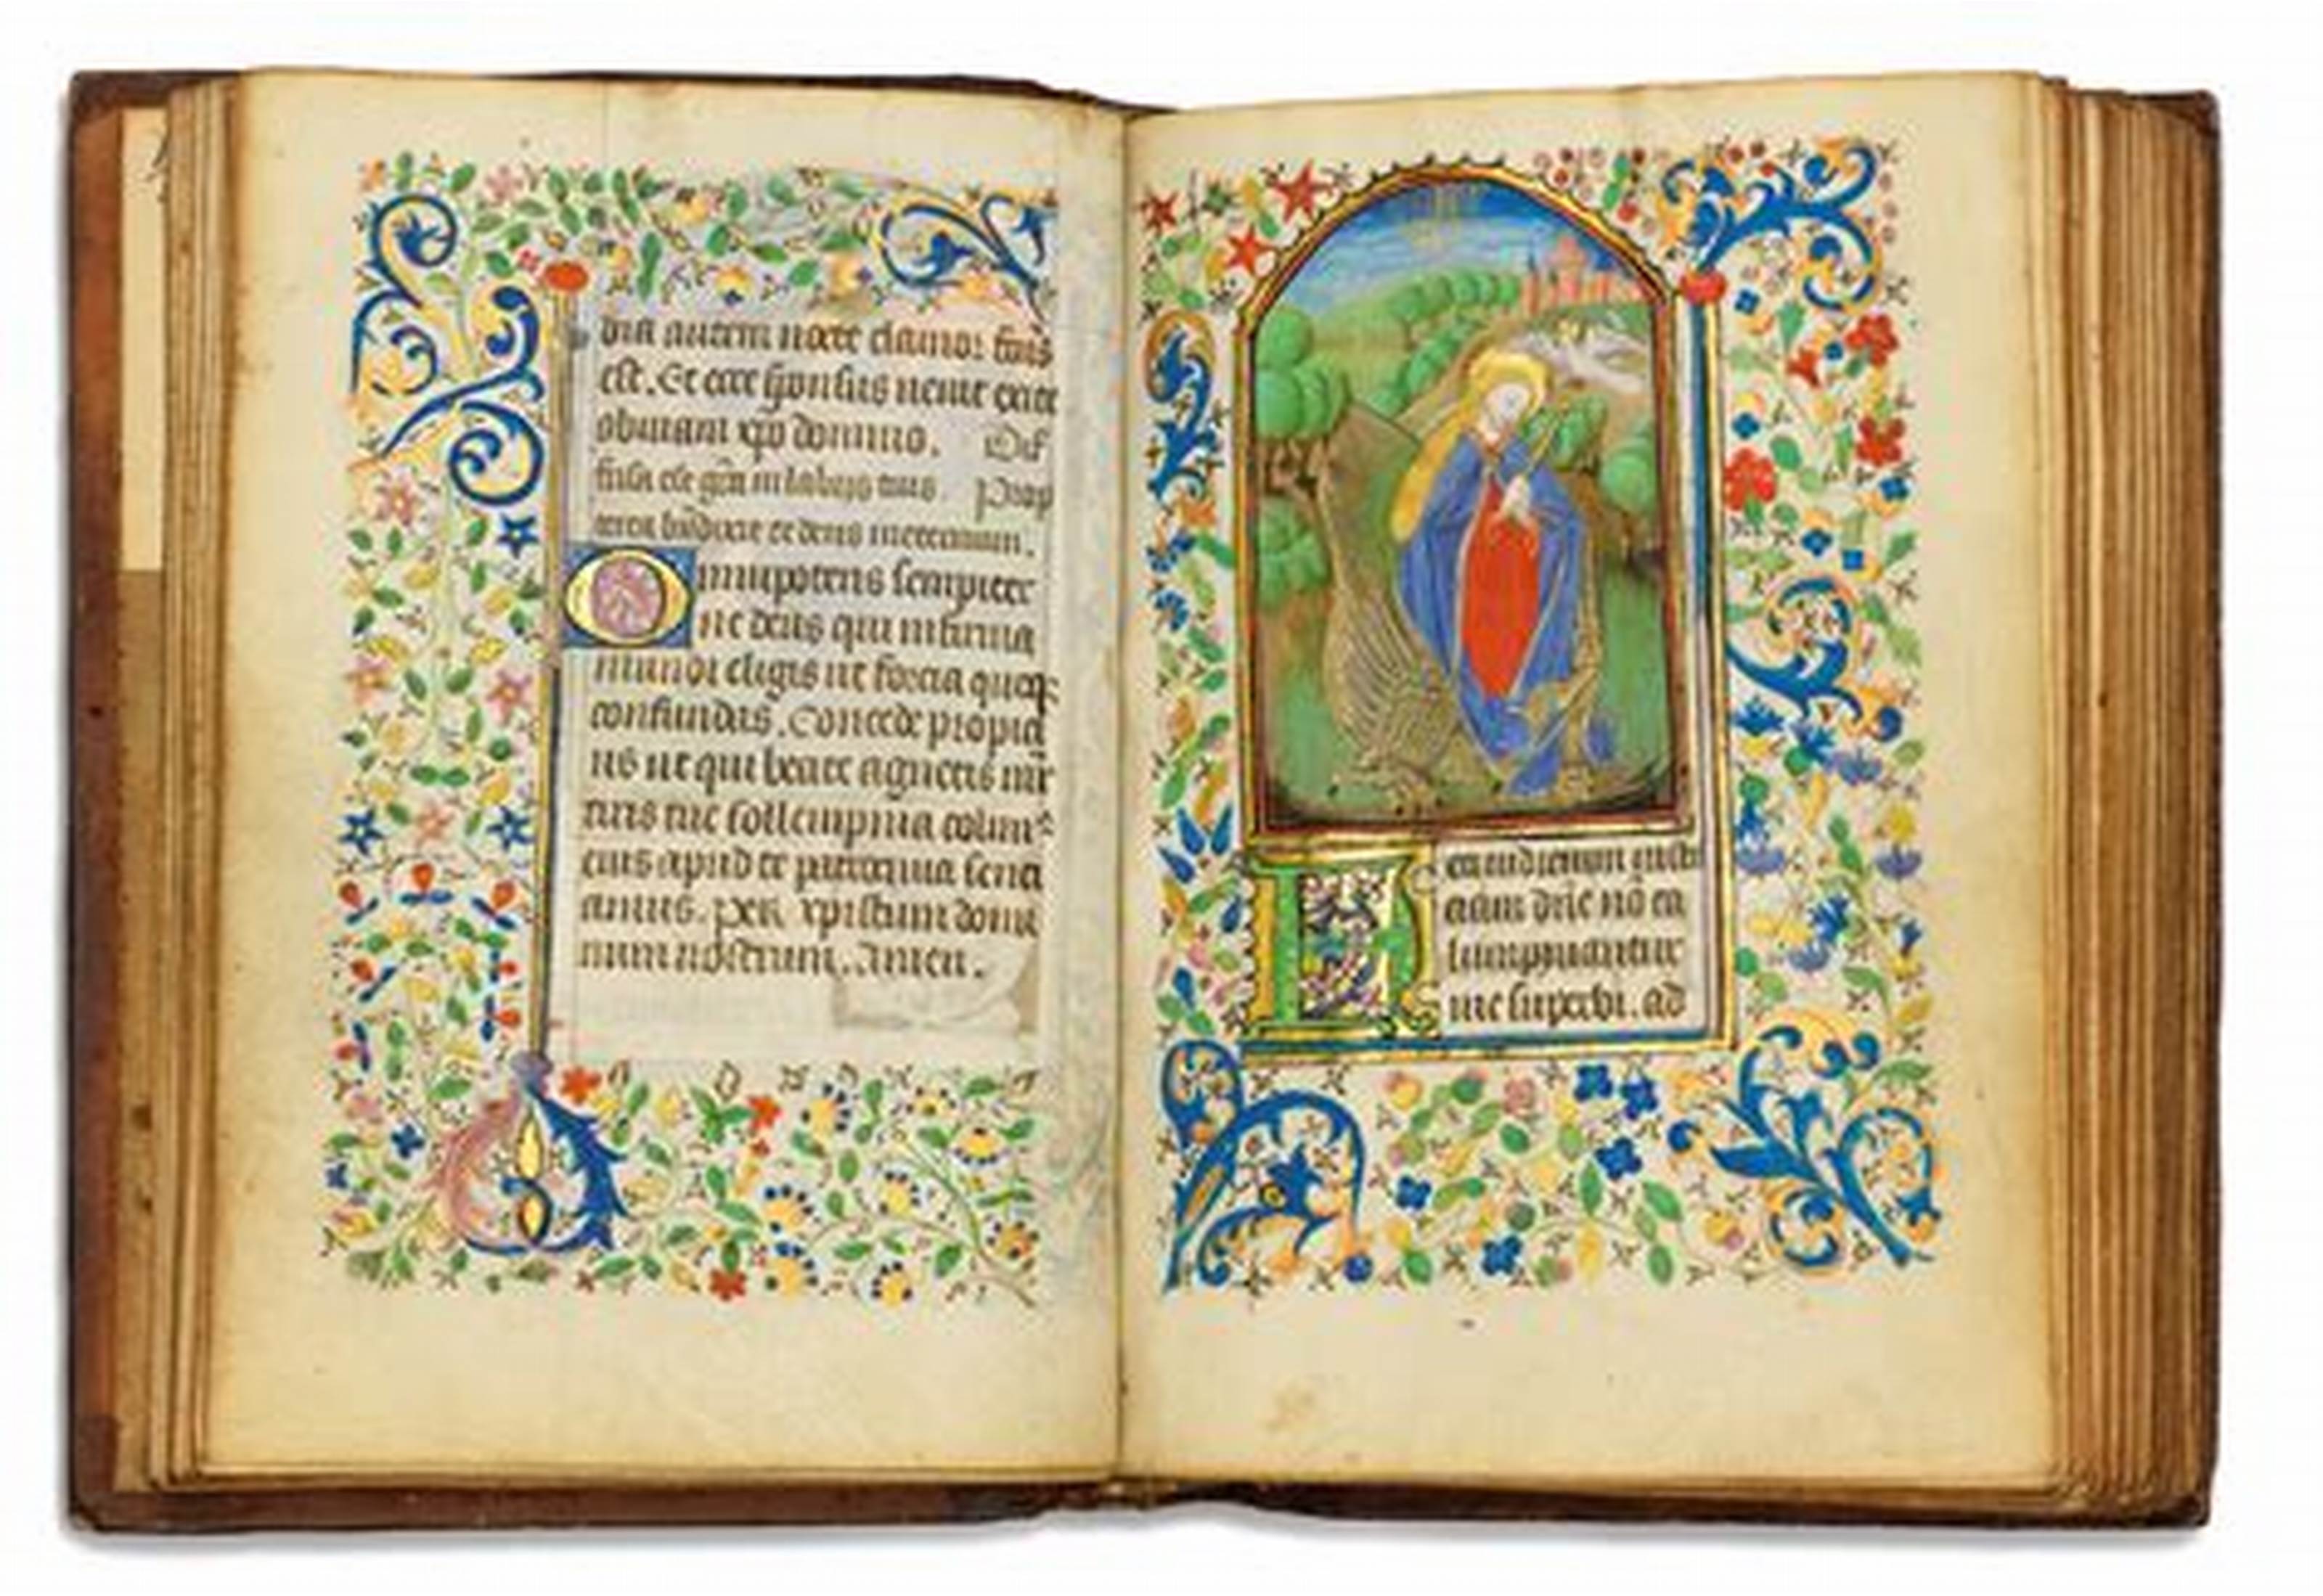 dia autem nocte clamor fcūs
est. Et ecce sponsus uenit exite
obuiam xp̄o domino. Dif
fusa est gr̄a in labiis tuis. Prop
terea bn̄dixit te deus in eternum.
Omnipotens sempiter
ne deus qui infirma
mundi eligis ut forcia queq̄
confundas. Concede propici
us ut qui beate agnetis mr̄
tiris tue sollempnia colim⁹
eius apud te patrocinia senci
amus. per xpistum domi
num nostrum. Amen.
Ex audienum iusti
ciam dn̄e nō ca
lumpniantur
me superbi. ad